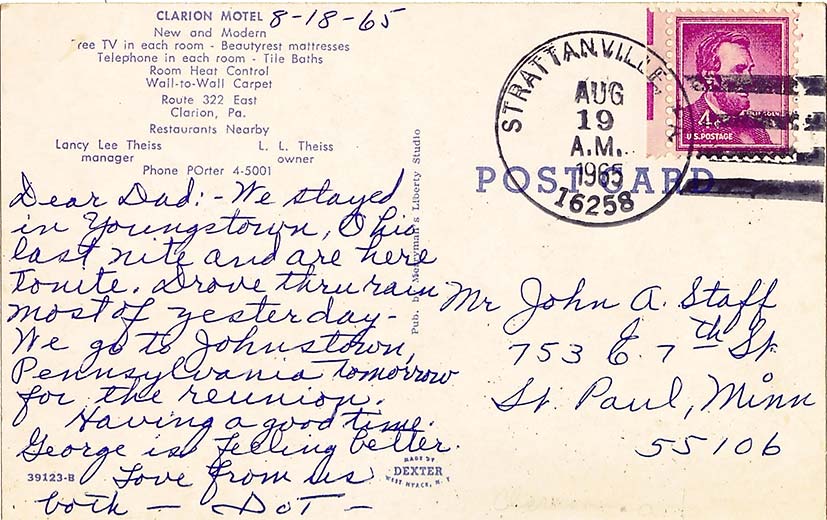 CLARION MOTEL 8-18-65
New and Modern
ree TV in each room - Beautyrest mattresses
Telephone in each room - Tile Baths
Room Heat Control
Wall-to-Wall Carpet
Route 322 East
Clarion, Pa.
Restaurants Nearby
Lancy Lee Theiss L. L. Theiss
manager owner
Phone POrter 4-5001
Dear Dad:- We stayed
in Youngstown, Ohio
last nite and are here
tonite. Drove thru rain
most of yesterday-
We go to Johnstown,
Pennsylvania tomorrow
for the reunion.
Having a good time.
George is feeling better.
Love from us
both - Dot -
39123-B
Pub. by Merryman's Liberty Studio
MADE BY
DEXTER
WEST NYACK, N.Y.
STRATTANVILLE, PA
AUG
19
A.M.
1965
16258
4¢
U.S. POSTAGE
POST CARD
Mr John A. Staff
753 E. 7th St
St. Paul, Minn
55106